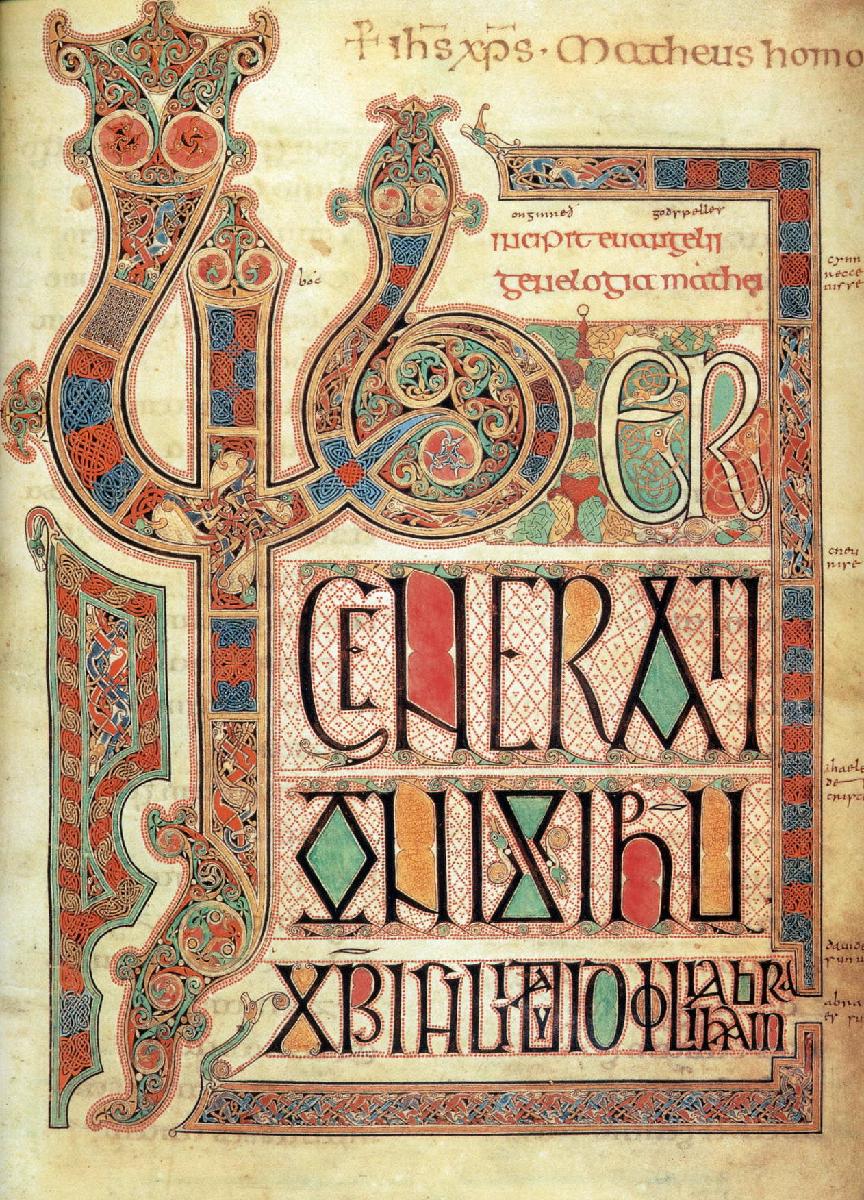 + ihs xps · Matheus homo
onginneð godspelles
incipit euangelii
genelogia mathei
boc
LIBER
GENERATI
ONIS IHU
XPI FILII DAVID FILII ABRAHAM